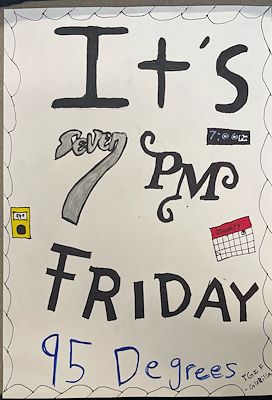 It's
Seven
7
PM
7:00
FRIDAY
95 Degrees
TGIF